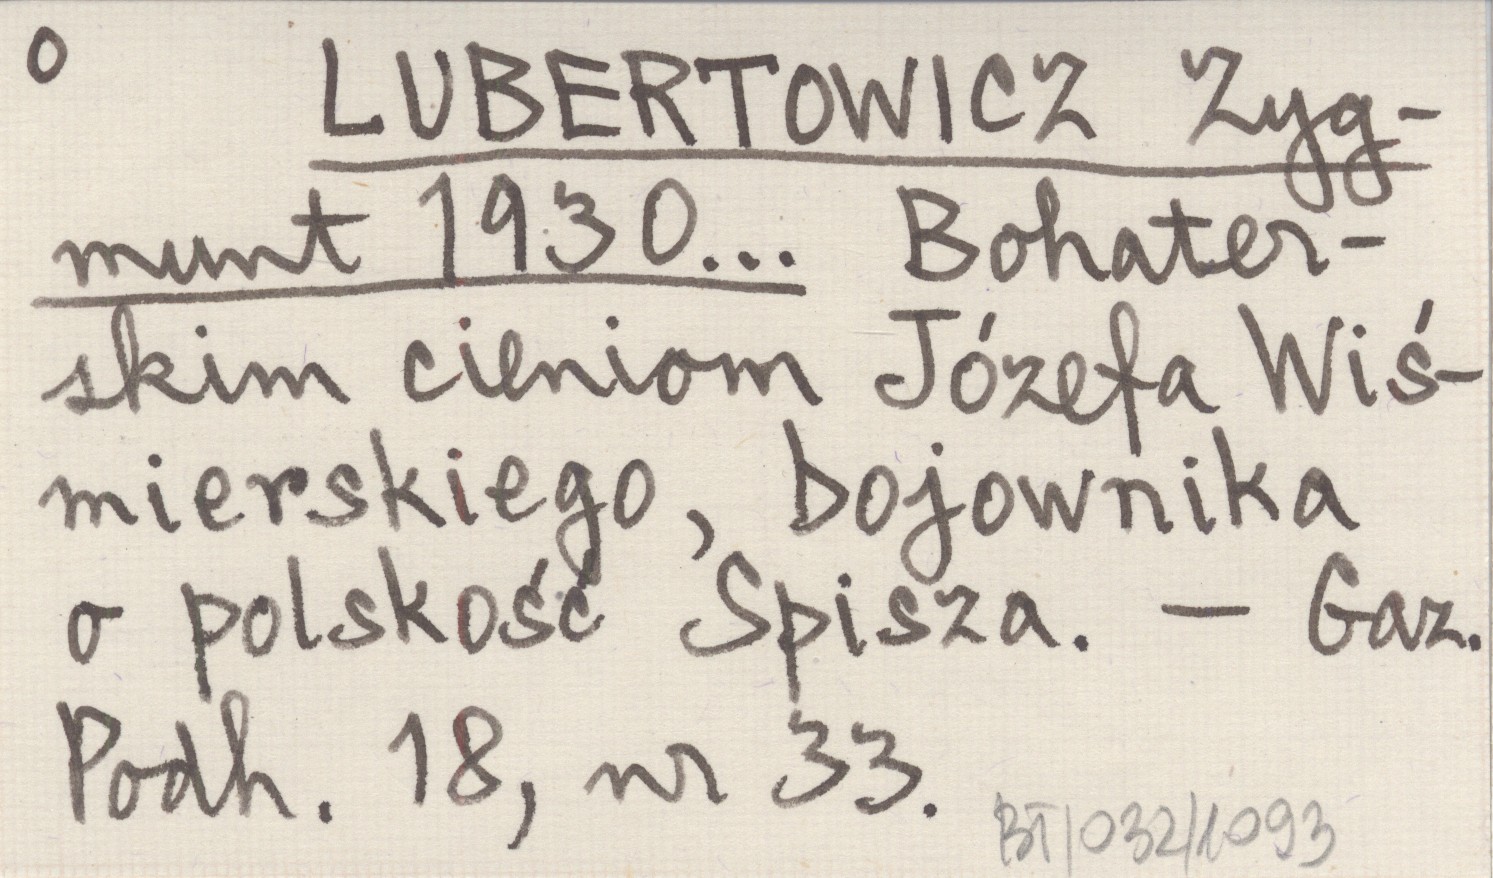 o LUBERTOWICZ Zyg-
munt 1930... Bohater-
skim cieniom Józefa Wiś-
mierskiego, bojownika
o polskość Spisza. — Gaz.
Podh. 18, nr 33.
BT/032/1093